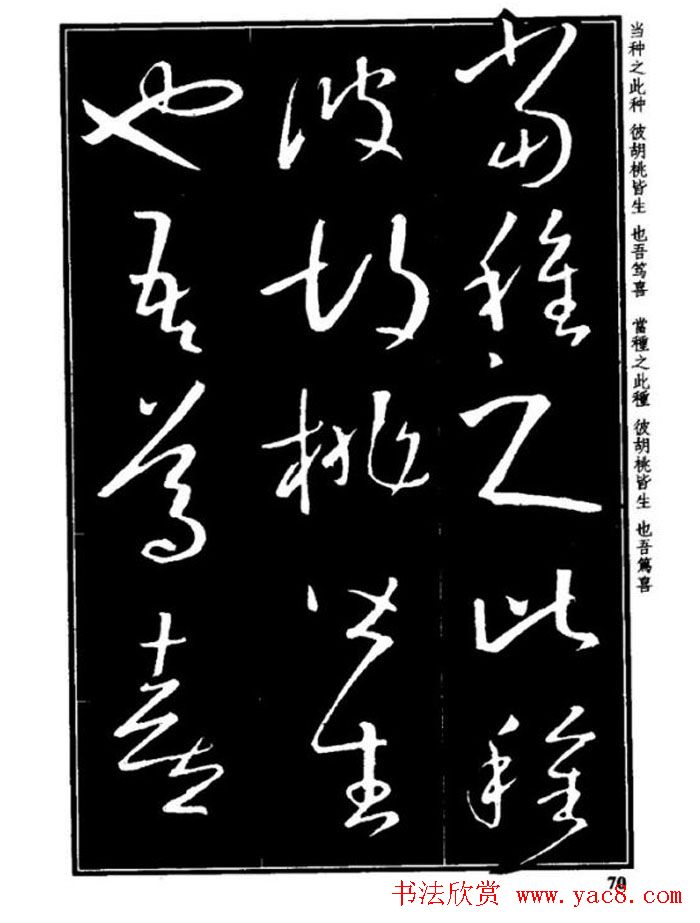 當種之此種
彼胡桃皆生
也吾篤喜
当种之此种 彼胡桃皆生 也吾笃喜 當種之此種 彼胡桃皆生 也吾篤喜
70
书法欣赏 www.yac8.com